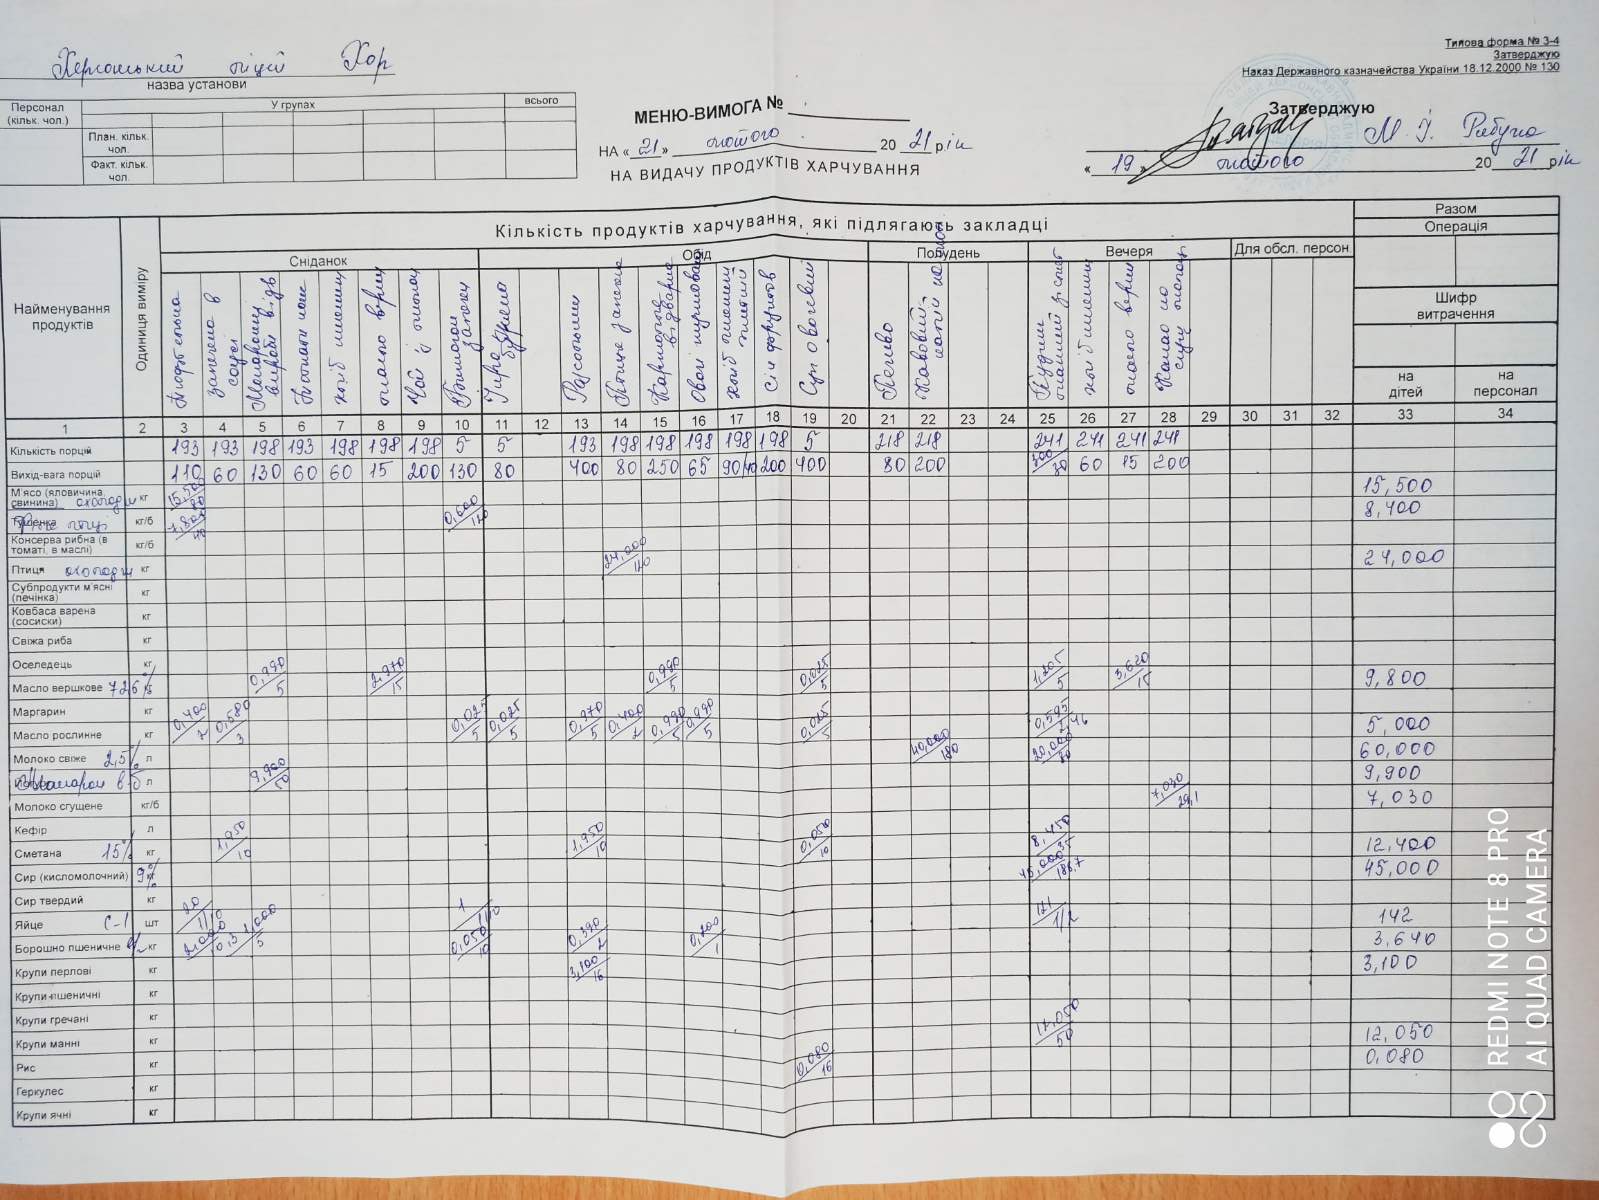 Типова форма № 3-4
Затверджую
Наказ Державного казначейства України 18.12.2000 № 130
Херсонський ліцей ХОР
назва установи
Персонал (кільк. чол.)
У групах
всього
План. кільк. чол.
Факт. кільк. чол.
МЕНЮ-ВИМОГА №
НА « 21 » лютого 20 21 рік
НА ВИДАЧУ ПРОДУКТІВ ХАРЧУВАННЯ
Затверджую
« 19 » лютого 20 21 рік
Найменування продуктів
Одиниця виміру
Кількість продуктів харчування, які підлягають закладці
Разом
Операція
Сніданок
Обід
Полудень
Вечеря
Для обсл. персон
Шифр витрачення
на дітей
на персонал
запечена в соусі
хліб пшен
масло верш
Птиця запечена
Картопля відварна
Сік фруктов
Суп овочевий
Печиво
масло верш
1 2 3 4 5 6 7 8 9 10 11 12 13 14 15 16 17 18 19 20 21 22 23 24 25 26 27 28 29 30 31 32 33 34
Кількість порцій 193 193 198 193 198 198 198 5 5 193 198 198 198 198 198 5 218 218 241 241 241 241
Вихід-вага порцій 110 60 130 60 60 15 200 130 80 400 80 250 65 90/40 200 400 80 200 300/30 60 15 200
М'ясо (яловичина, свинина) охолодж кг 15,500/80 15,500
Тушенка кг/б 7,800/40 0,600/120 8,400
Консерва рибна (в томаті, в маслі) кг/б
Птиця охолодж кг 24,000/120 24,000
Субпродукти м'ясні (печінка) кг
Ковбаса варена (сосиски) кг
Свіжа риба кг
Оселедець кг
Масло вершкове 72,6% кг 0,990/5 2,970/15 0,990/5 0,025/5 1,205/5 3,620/15 9,800
Маргарин кг
Масло рослинне кг 0,400/2 0,580/3 0,025/5 0,025/5 0,970/5 0,400/2 0,990/5 0,990/5 0,025/5 0,595/2,46 5,000
Молоко свіже 2,5% л 40,000/180 20,000/80 60,000
Макарон в-б л 9,900/50 9,900
Молоко сгущене кг/б 7,030/29,1 7,030
Кефір л
Сметана 15% кг 1,950/10 1,950/10 0,050/10 8,450/35 12,400
Сир (кисломолочний) 9% кг 45,000/186,7 45,000
Сир твердий кг
Яйце С-1 шт 20/1/10 1 121/1/2 142
Борошно пшеничне кг 2,000/10,3 1,000/5 0,050/10 0,390/2 0,200/1 3,640
Крупи перлові кг 3,100/16 3,100
Крупи пшеничні кг
Крупи гречані кг
Крупи манні кг 12,050/50 12,050
Рис кг 0,080/16 0,080
Геркулес кг
Крупи ячні кг
REDMI NOTE 8 PRO
AI QUAD CAMERA